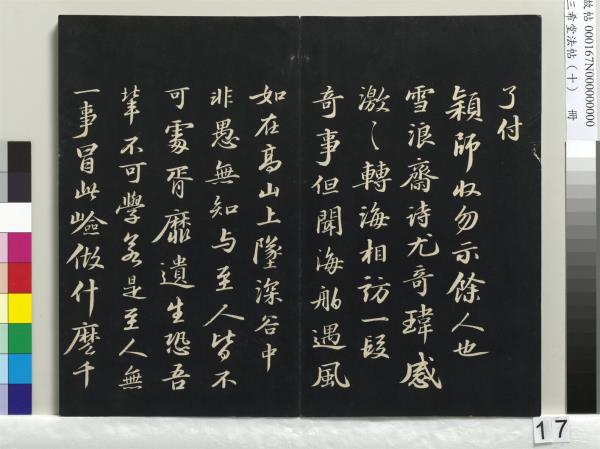 了付
穎師收勿示餘人也
雪浪齋诗尤奇瑋感
激〻轉海相訪一段
奇事但聞海舶遇風
如在高山上墜深谷中
非愚無知与至人皆不
可處胥靡遺生恐吾
輩不可學若是至人無
一事冒此嶮做什麼千
故帖 000167N000000000
三希堂法帖（十） 冊
17